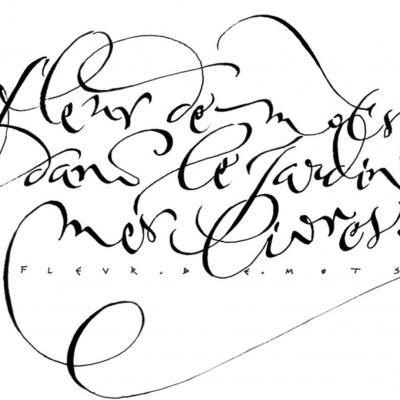 fleur de mots
dans le Jardin
mes livres
FLEUR.DE.MOTS